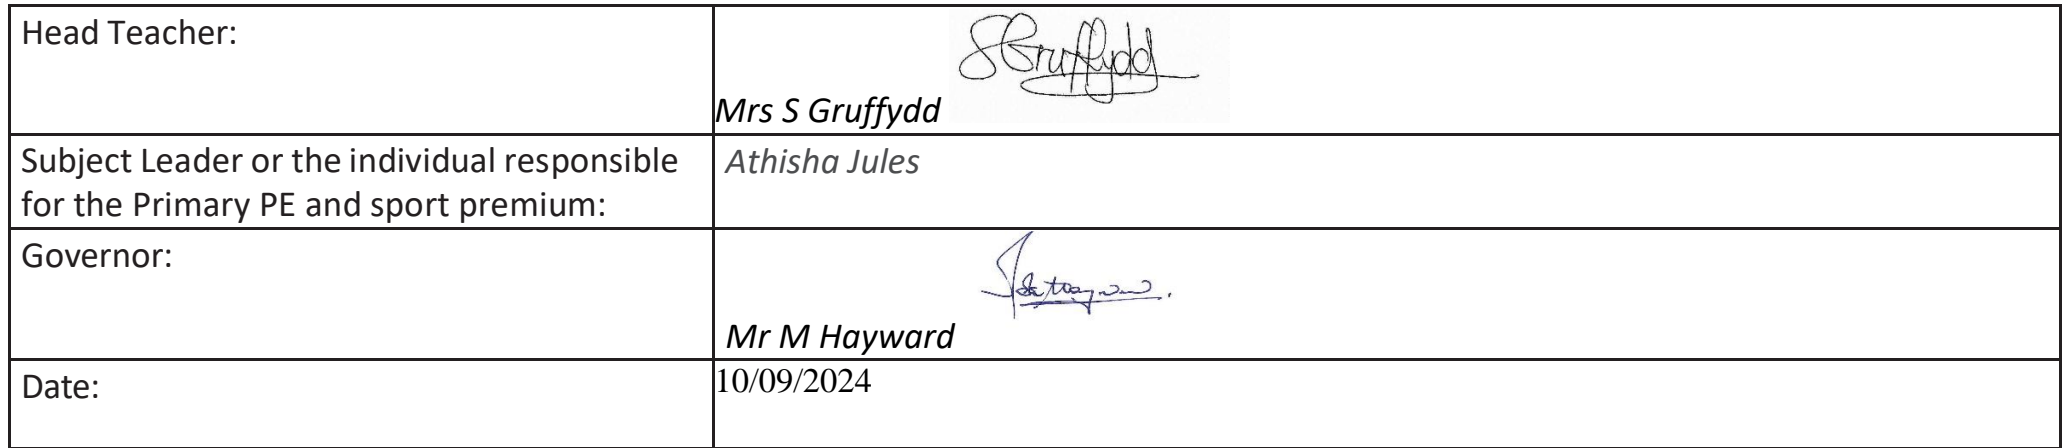 Head Teacher:
SGruffydd
Mrs S Gruffydd
Subject Leader or the individual responsible
for the Primary PE and sport premium:
Athisha Jules
Governor:
Mr M Hayward
Date:
10/09/2024